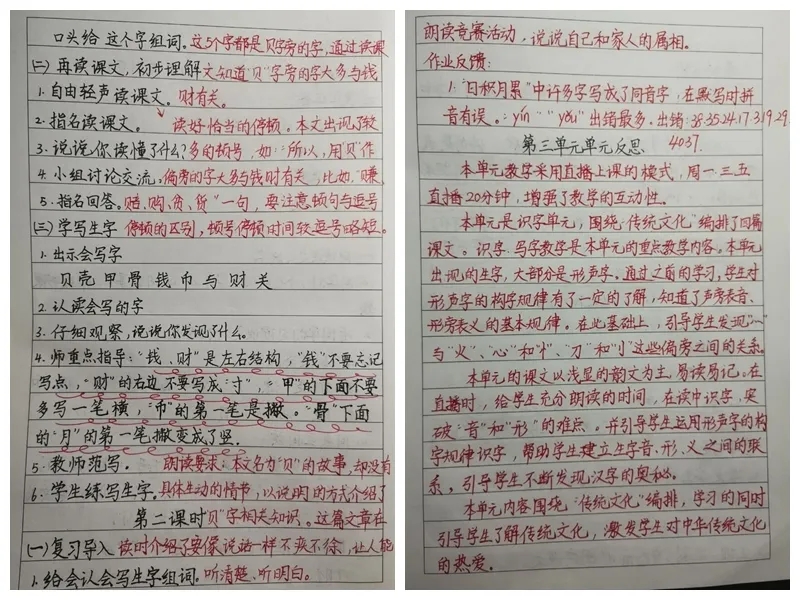 口头给 这个字组词。这5个字都是贝字旁的字,通过读课
(二)再读课文,初步理解 文知道"贝"字旁的字大多与钱
1.自由轻声读课文。财有关。
2.指名读课文。 读好恰当的停顿。本文出现了较
3.说说你读懂了什么?多的顿号,如:"所以,用"贝"作
4.小组讨论交流。偏旁的字大多与钱财有关,比如,"赚、
5.指名回答。赔、购、贫、货"一句,要注意顿句与逗号
(三)学写生字 停顿的区别,顿号停顿时间较逗号略短。
1.出示会写字
贝 壳 甲 骨 钱 币 与 财 关
2.认读会写的字
3.仔细观察,说说你发现了什么。
4.师重点指导:"钱、财"是左右结构,"钱"不要忘记
写点,"财"的右边不要写成"寸","甲"的下面不要
多写一笔横,"币"的第一笔是撇。"骨"下面
的"月"的第一笔撇变成了竖.
5.教师范写。 朗读要求:本文名为"贝"的故事,却没有
6.学生练写生字。具体生动的情节,以说明的方式介绍了
第二课时"贝"字相关知识。这篇文章在
(一)复习导入 读时介绍了要像说话一样不疾不徐,让人能
1.给会认会写生字组词。听清楚、听明白。
朗读竞赛活动,说说自己和家人的属相。
作业反馈:
1."日积月累"中许多字写成了同音字,在默写时拼
音有误。:yín " " yǒu"出错最多.出错:38.35.24.17.31.9.29.
第三单元单元反思 40.37.
本单元教学采用直播上课的模式,周一.三.五
直播20分钟,增强了教学的互动性。
本单元是识字单元,围绕"传统文化"编排了四篇
课文。识字.写字教学是本单元的重点教学内容。本单元
出现的生字,大部分是形声字。通过之前的学习,学生对
形声字的构字规律有了一定的了解,知道了声旁表音、
形旁表义的基本规律。在此基础上,引导学生发现"灬"
与"火"、"心"和"忄"、"刀"和"刂"这些偏旁之间的关系。
本单元的课文以浅显的韵文为主,易读易记。在
直播时,给学生充分朗读的时间,在读中识字,突
破"音"和"形"的难点。并引导学生运用形声字的构
字规律识字,帮助学生建立生字音、形、义之间的联
系,引导学生不断发现汉字的奥秘。
本单元内容围绕"传统文化"编排,学习的同时
引导学生了解传统文化,激发学生对中华传统文化
的热爱。